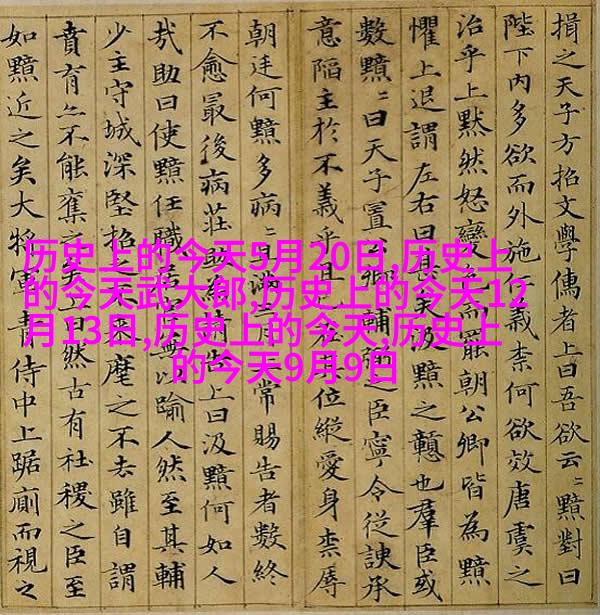 揖之天子方招文學儒者上曰吾欲云〻黯對曰
陛下內多欲而外施仁義柰何欲效唐虞之
治乎上黙然怒變色而罷朝公卿皆為黯
懼上退謂左右曰甚矣汲黯之戇也羣臣或
數黯〻曰天子置公卿輔弼之臣寧令從諛承
意陷主於不義乎且位縱愛身柰辱
朝廷何黯多病〻且滿常賜告者數終
不愈最後病莊請告上曰汲黯何如人
哉助曰使黯任職居以踰人然至其輔
少主守城深堅招之不來麾之不去雖自謂
賁育亦不能奪之矣上曰然古有社稷之臣至
如黯近之矣大將軍青侍中上踞廁而視之
历史上的今天5月20日,历史上
的今天武大郎,历史上的今天12
月13日,历史上的今天,历史上
的今天9月9日